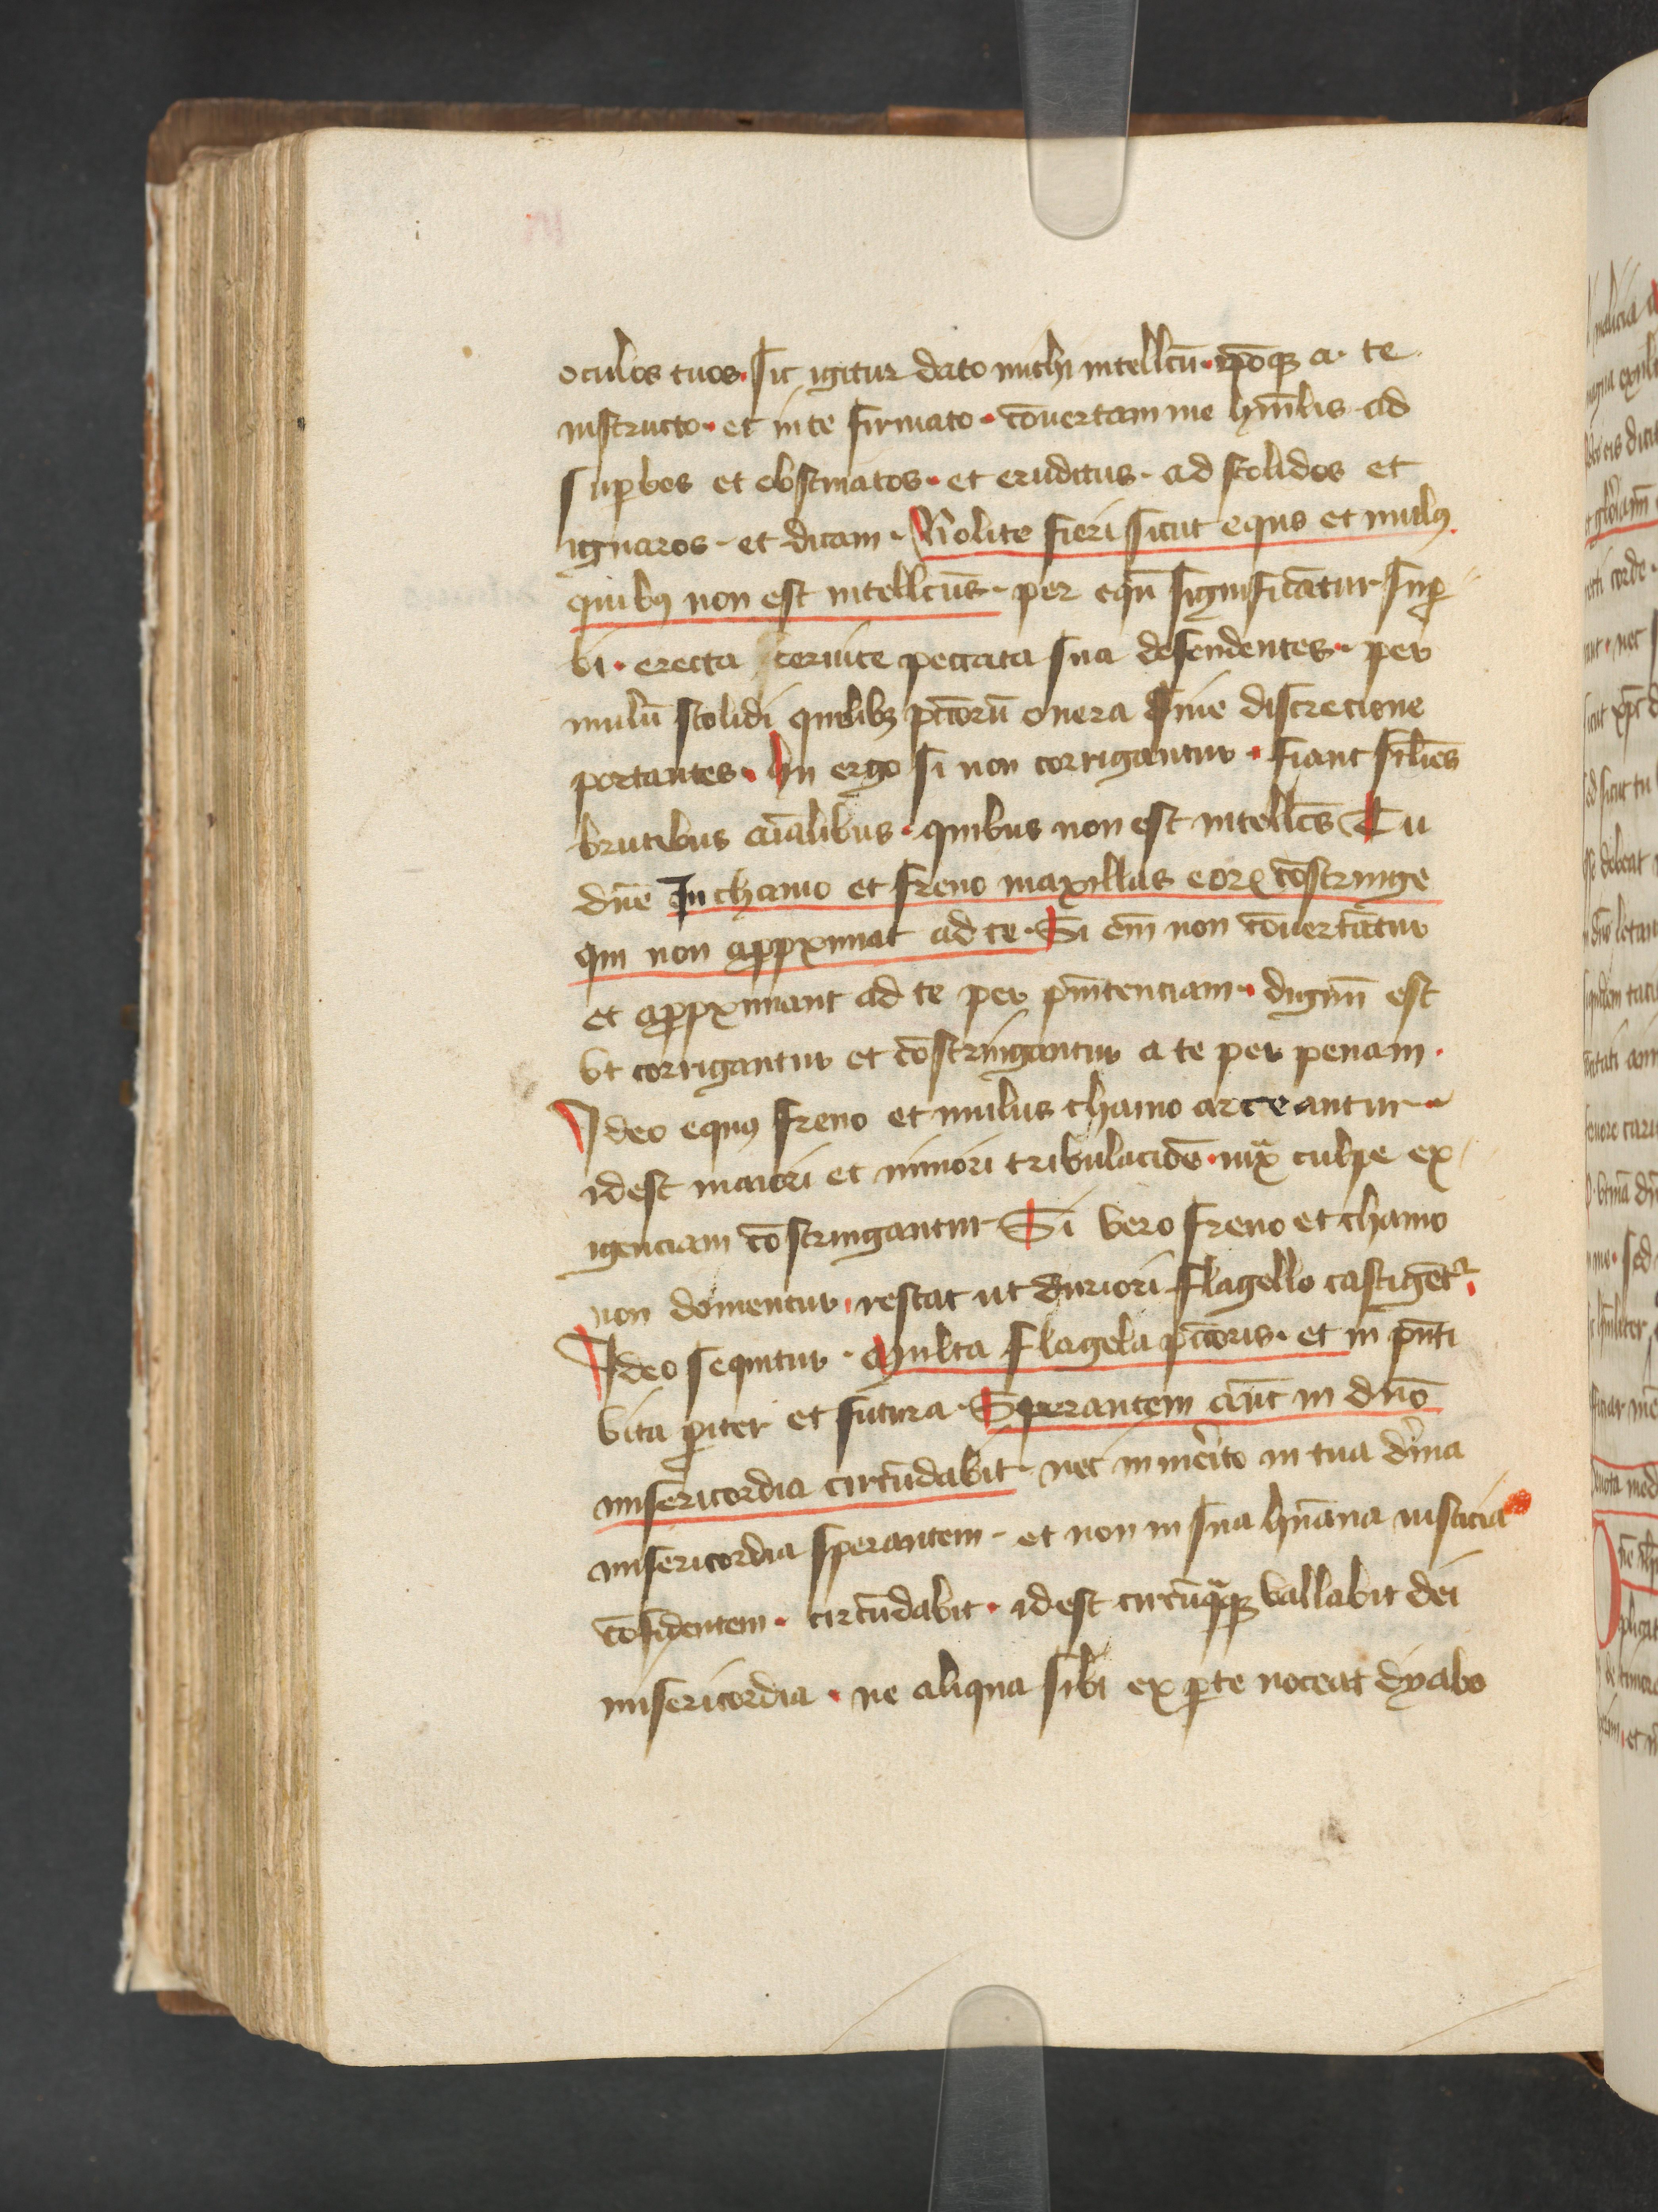 oculos tuos · sic igitur dato michi intellc̄tū · ip̄oq; a te
instructo · et in te firmato · cōuertam me hūilis ad
suꝑbos et obstinatos · et eruditus · ad stolidos et
ignaros · et dicam · Nolite fieri sicut equs et mulꝰ
quibꝰ non est intellectus · per equū significātur suꝑ
bi · erecta ceruice peccata sua defendentes · per
mulū stolidi quelibꝫ pct̄orū onera sine discrecione
portantes · Hii ergo si non corrigantur · fiant sil̄es
brutibus aīalibus · quibus non est intellc̄s Tu
dn̄e In chamo et freno maxillas eoꝝ cōstringe
qui non approximāt ad te · Si em̄ non cōuertātur
et approximant ad te per pn̄itenciam · dignū est
vt corrigantur et cōstringantur a te per penam ·
Ideo equꝰ freno et mulus chamo arceantur ·
idest maiori et minori tribulacōe · iux̄ culpe ex
igenciam cōstringantur Si vero freno et chamo
non domentur · restat ut duriori flagello castigent᷑
Ideo sequitur · Multa flagela pct̄oris · et in pn̄ti
vita ꝑiter et futura · Sperantem aūt in dn̄o
misericordia circūdabit · nec inmerito in tua diuīa
misericordia sperantem · et non in sua hūana iusticia
cōfidentem · circūdabit · idest circūquaq; vallabit dei
misericordia · ne aliqua sibi ex ꝑte noceat dyabo